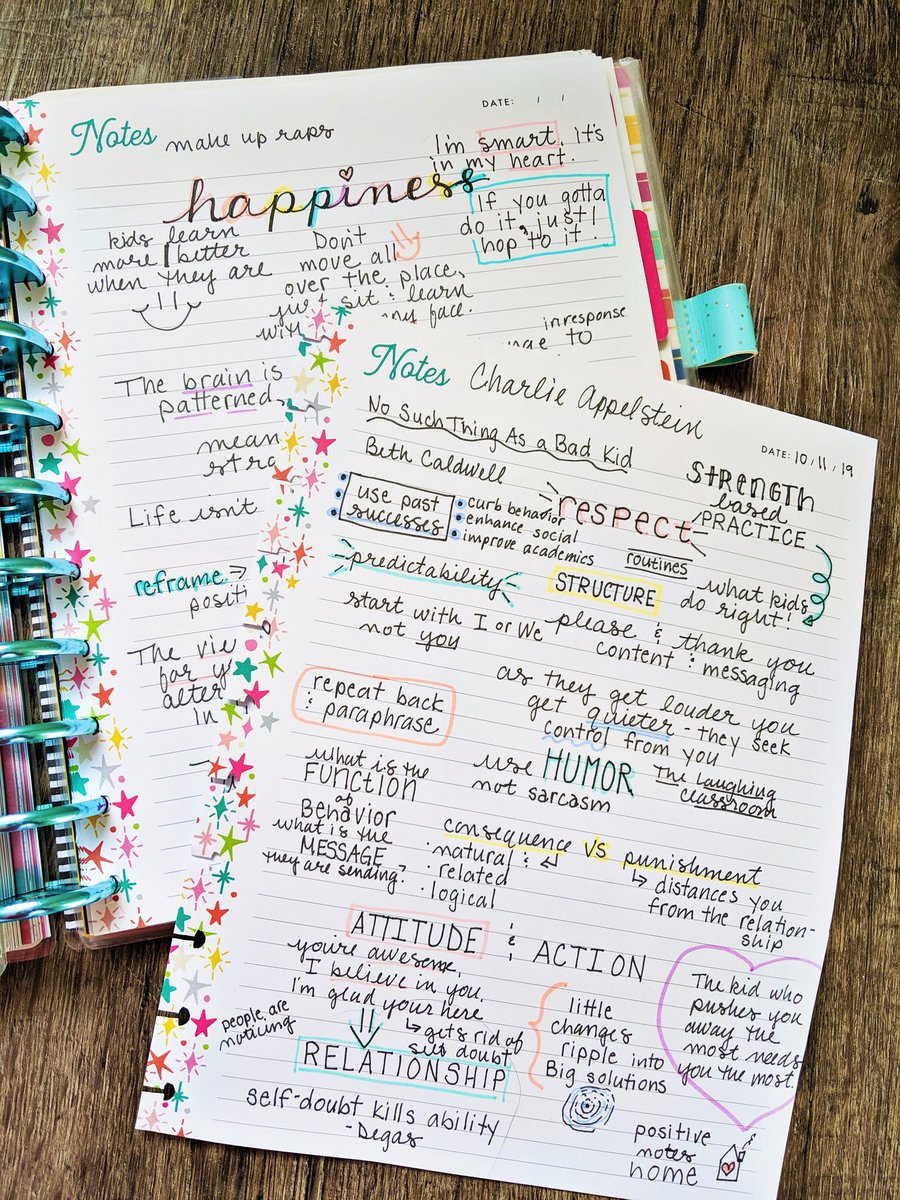 DATE: / /
Notes make up raps
I'm smart, it's
in my heart.
happiness
If you gotta
do it, just
hop to it!
kids learn
more / better
when they are
Don't
move all
over the place,
just sit & learn
with my face.
in response
to
The brain is
patterned,
mean
stra
Life isn't
reframe →
positi
The vie
for y
alter
in
Notes Charlie Appelstein
DATE: 10/11/19
No Such Thing As a Bad Kid
Beth Caldwell
STRENGTH
based
PRACTICE
use past
successes
• curb behavior
• enhance social
• improve academics
respect
routines
predictability
STRUCTURE
what kids
do right!
start with I or We
not you
please & thank you
content & messaging
repeat back
& paraphrase
as they get louder you
get quieter - they seek
control from you
what is the
FUNCTION
of
Behavior
what is the
MESSAGE
they are sending?
use HUMOR
not sarcasm
The Laughing
classroom
consequence vs punishment
• natural &
• related
• logical
↳ distances you
from the relation-
ship
ATTITUDE & ACTION
you're awesome,
I believe in you,
I'm glad your here
↳ gets rid of
self doubt
people are
noticing
RELATIONSHIP
little
changes
ripple into
Big solutions
The kid who
pushes you
away the
most needs
you the most.
self-doubt kills ability
-Degas
positive
notes
home